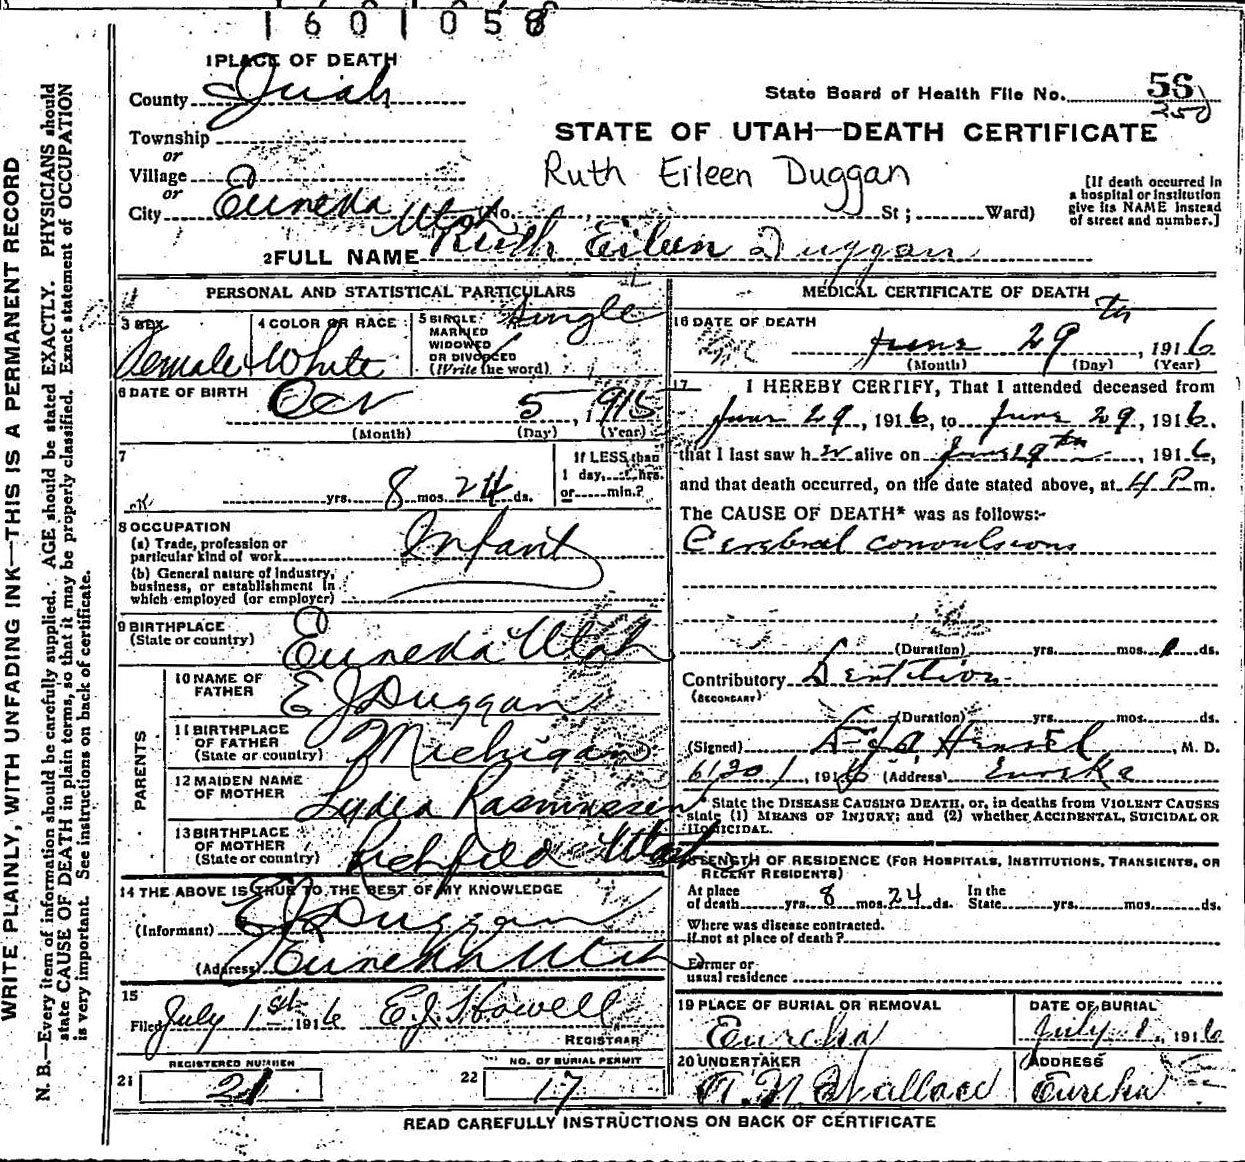 1601058
1 PLACE OF DEATH
County Juab
State Board of Health File No. 56
250
Township
or
Village
or
City Eureka Utah No. St; Ward)
STATE OF UTAH—DEATH CERTIFICATE
Ruth Eileen Duggan
[If death occurred in
a hospital or institution
give its NAME instead
of street and number.]
2 FULL NAME Ruth Eileen Duggan
PERSONAL AND STATISTICAL PARTICULARS
3 SEX
Female
4 COLOR OR RACE
White
5 SINGLE
MARRIED
WIDOWED
OR DIVORCED
(Write the word)
Single
6 DATE OF BIRTH
5, 1915
(Month) (Day) (Year)
7
yrs. 8 mos. 24 ds.
If LESS than
1 day, hrs.
or min.?
8 OCCUPATION
(a) Trade, profession or
particular kind of work
Infant
(b) General nature of industry,
business, or establishment in
which employed (or employer)
9 BIRTHPLACE
(State or country)
Eureka Utah
PARENTS
10 NAME OF
FATHER
E J Duggan
11 BIRTHPLACE
OF FATHER
(State or country)
Michigan
12 MAIDEN NAME
OF MOTHER
Lydia Rasmussen
13 BIRTHPLACE
OF MOTHER
(State or country)
Richfield Utah
14 THE ABOVE IS TRUE TO THE BEST OF MY KNOWLEDGE
(Informant) E J Duggan
(Address) Eureka Utah
15
Filed July 1st 1916 E.J. Howell
REGISTRAR
REGISTERED NUMBER
21 21
NO. OF BURIAL PERMIT
22 17
MEDICAL CERTIFICATE OF DEATH
16 DATE OF DEATH
June 29th, 1916
(Month) (Day) (Year)
17 I HEREBY CERTIFY, That I attended deceased from
June 29, 1916, to June 29, 1916.
that I last saw her alive on June 29th, 1916,
and that death occurred, on the date stated above, at 4 P m.
The CAUSE OF DEATH* was as follows:-
Cerebral convulsions
(Duration) yrs. mos. 1 ds.
Contributory Dentition
(SECONDARY)
(Duration) yrs. mos. ds.
(Signed) Hensel, M. D.
6/30, 1916 (Address) Eureka
* State the DISEASE CAUSING DEATH, or, in deaths from VIOLENT CAUSES
state (1) MEANS OF INJURY; and (2) whether ACCIDENTAL, SUICIDAL OR
HOMICIDAL.
LENGTH OF RESIDENCE (FOR HOSPITALS, INSTITUTIONS, TRANSIENTS, OR
RECENT RESIDENTS)
At place
of death yrs. 8 mos. 24 ds.
In the
State yrs. mos. ds.
Where was disease contracted.
if not at place of death?
Former or
usual residence
19 PLACE OF BURIAL OR REMOVAL
Eureka
DATE OF BURIAL
July 1, 1916
20 UNDERTAKER
Wallace
ADDRESS
Eureka
READ CAREFULLY INSTRUCTIONS ON BACK OF CERTIFICATE
WRITE PLAINLY, WITH UNFADING INK—THIS IS A PERMANENT RECORD
N. B.—Every item of information should be carefully supplied. AGE should be stated EXACTLY. PHYSICIANS should
state CAUSE OF DEATH in plain terms, so that it may be properly classified. Exact statement of OCCUPATION
is very important. See instructions on back of certificate.